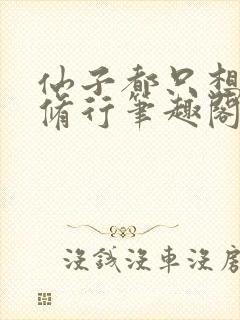 仙子都只想
脩行笔趣閣
没钱没車没房